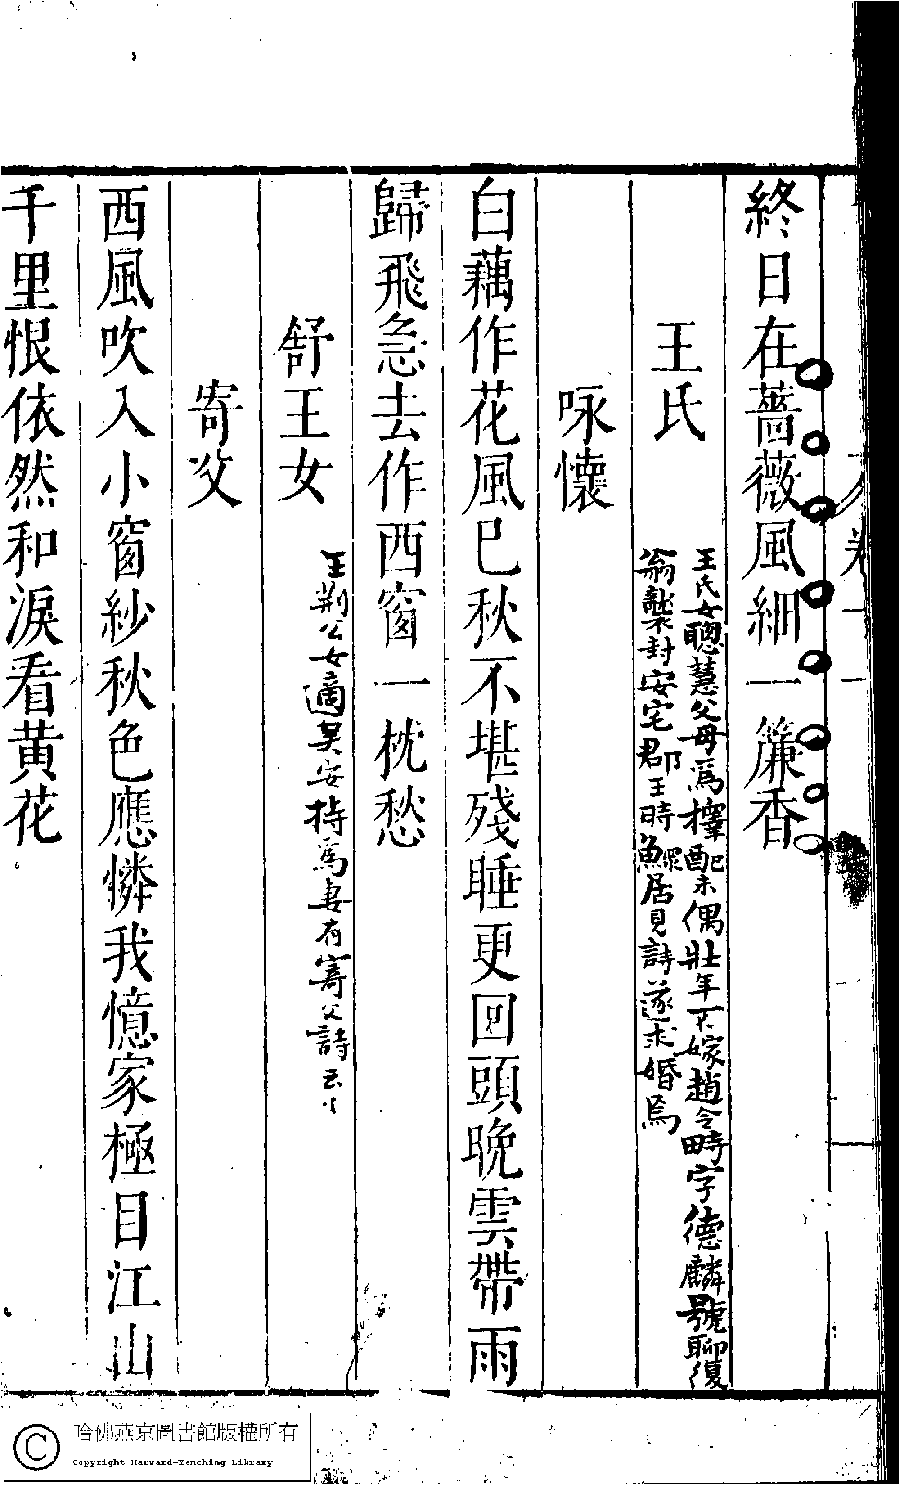 終日在薔薇風細一簾香
王氏
王氏女聰慧父母爲擇配未偶壯年下嫁趙令畤字德麟號聊復
翁襲封安定郡王時鰥居見詩遂求婚焉
咏懷
白藕作花風已秋不堪殘睡更回頭晩雲帶雨
歸飛急去作西窗一枕愁
舒王女
王荆公女適吳安持爲妻有寄父詩云々
寄父
西風吹入小窗紗秋色應憐我憶家極目江山
千里恨依然和淚看黄花
哈佛燕京圖書館版權所有
Copyright Harvard-Yenching Library